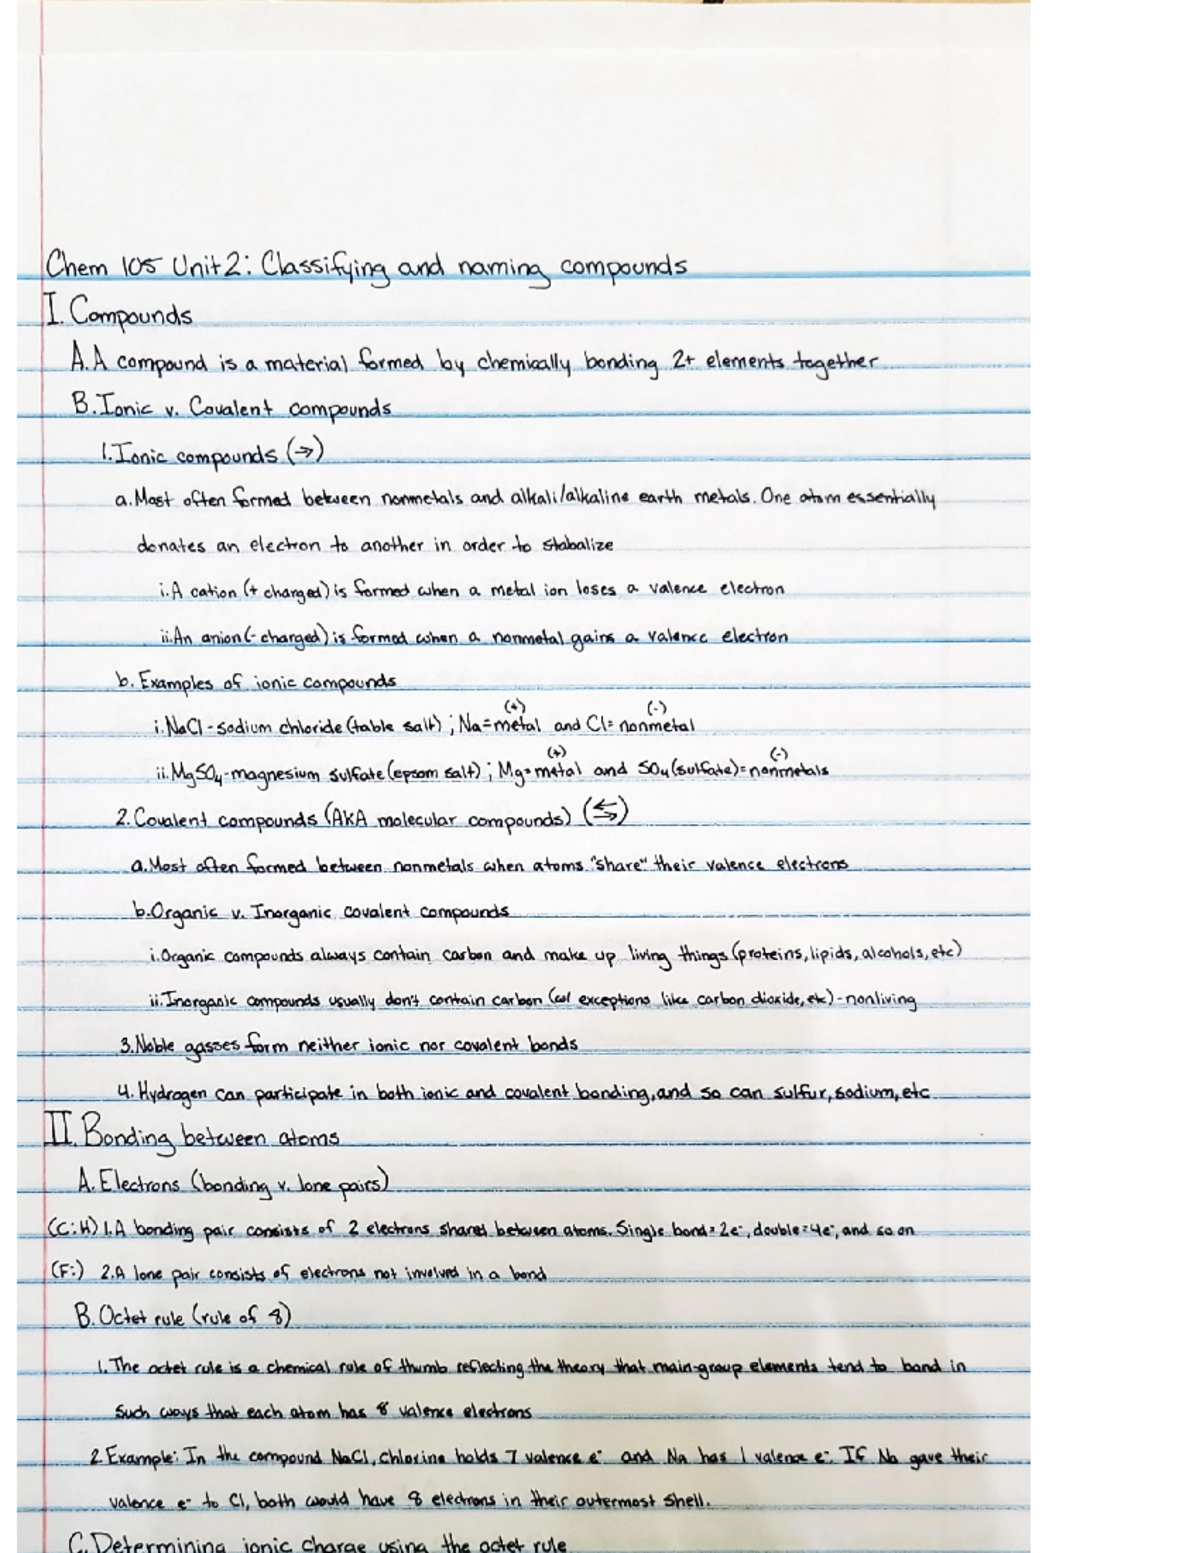 Chem 105 Unit 2: Classifying and naming compounds
I. Compounds
A. A compound is a material formed by chemically bonding 2+ elements together
B. Ionic v. Covalent compounds
1. Ionic compounds (→)
a. Most often formed between nonmetals and alkali/alkaline earth metals. One atom essentially
donates an electron to another in order to stabalize
i. A cation (+ charged) is formed when a metal ion loses a valence electron
ii. An anion (- charged) is formed when a nonmetal gains a valence electron
b. Examples of ionic compounds
(+) (-)
i. NaCl - sodium chloride (table salt); Na = metal and Cl = nonmetal
(+) (-)
ii. MgSO4 - magnesium sulfate (epsom salt); Mg = metal and SO4 (sulfate) = nonmetals
2. Covalent compounds (AKA molecular compounds) (⇆)
a. Most often formed between nonmetals when atoms "share" their valence electrons
b. Organic v. Inorganic covalent compounds
i. Organic compounds always contain carbon and make up living things (proteins, lipids, alcohols, etc)
ii. Inorganic compounds usually don't contain carbon (w/ exceptions like carbon dioxide, etc) - nonliving
3. Noble gasses form neither ionic nor covalent bonds
4. Hydrogen can participate in both ionic and covalent bonding, and so can sulfur, sodium, etc
II. Bonding between atoms
A. Electrons (bonding v. lone pairs)
(C:H) 1. A bonding pair consists of 2 electrons shared between atoms. Single bond = 2e-, double = 4e-, and so on
(F:) 2. A lone pair consists of electrons not involved in a bond
B. Octet rule (rule of 8)
1. The octet rule is a chemical rule of thumb reflecting the theory that main-group elements tend to bond in
such ways that each atom has 8 valence electrons
2. Example: In the compound NaCl, chlorine holds 7 valence e- and Na has 1 valence e-. If Na gave their
valence e- to Cl, both would have 8 electrons in their outermost shell.
C. Determining ionic charge using the octet rule